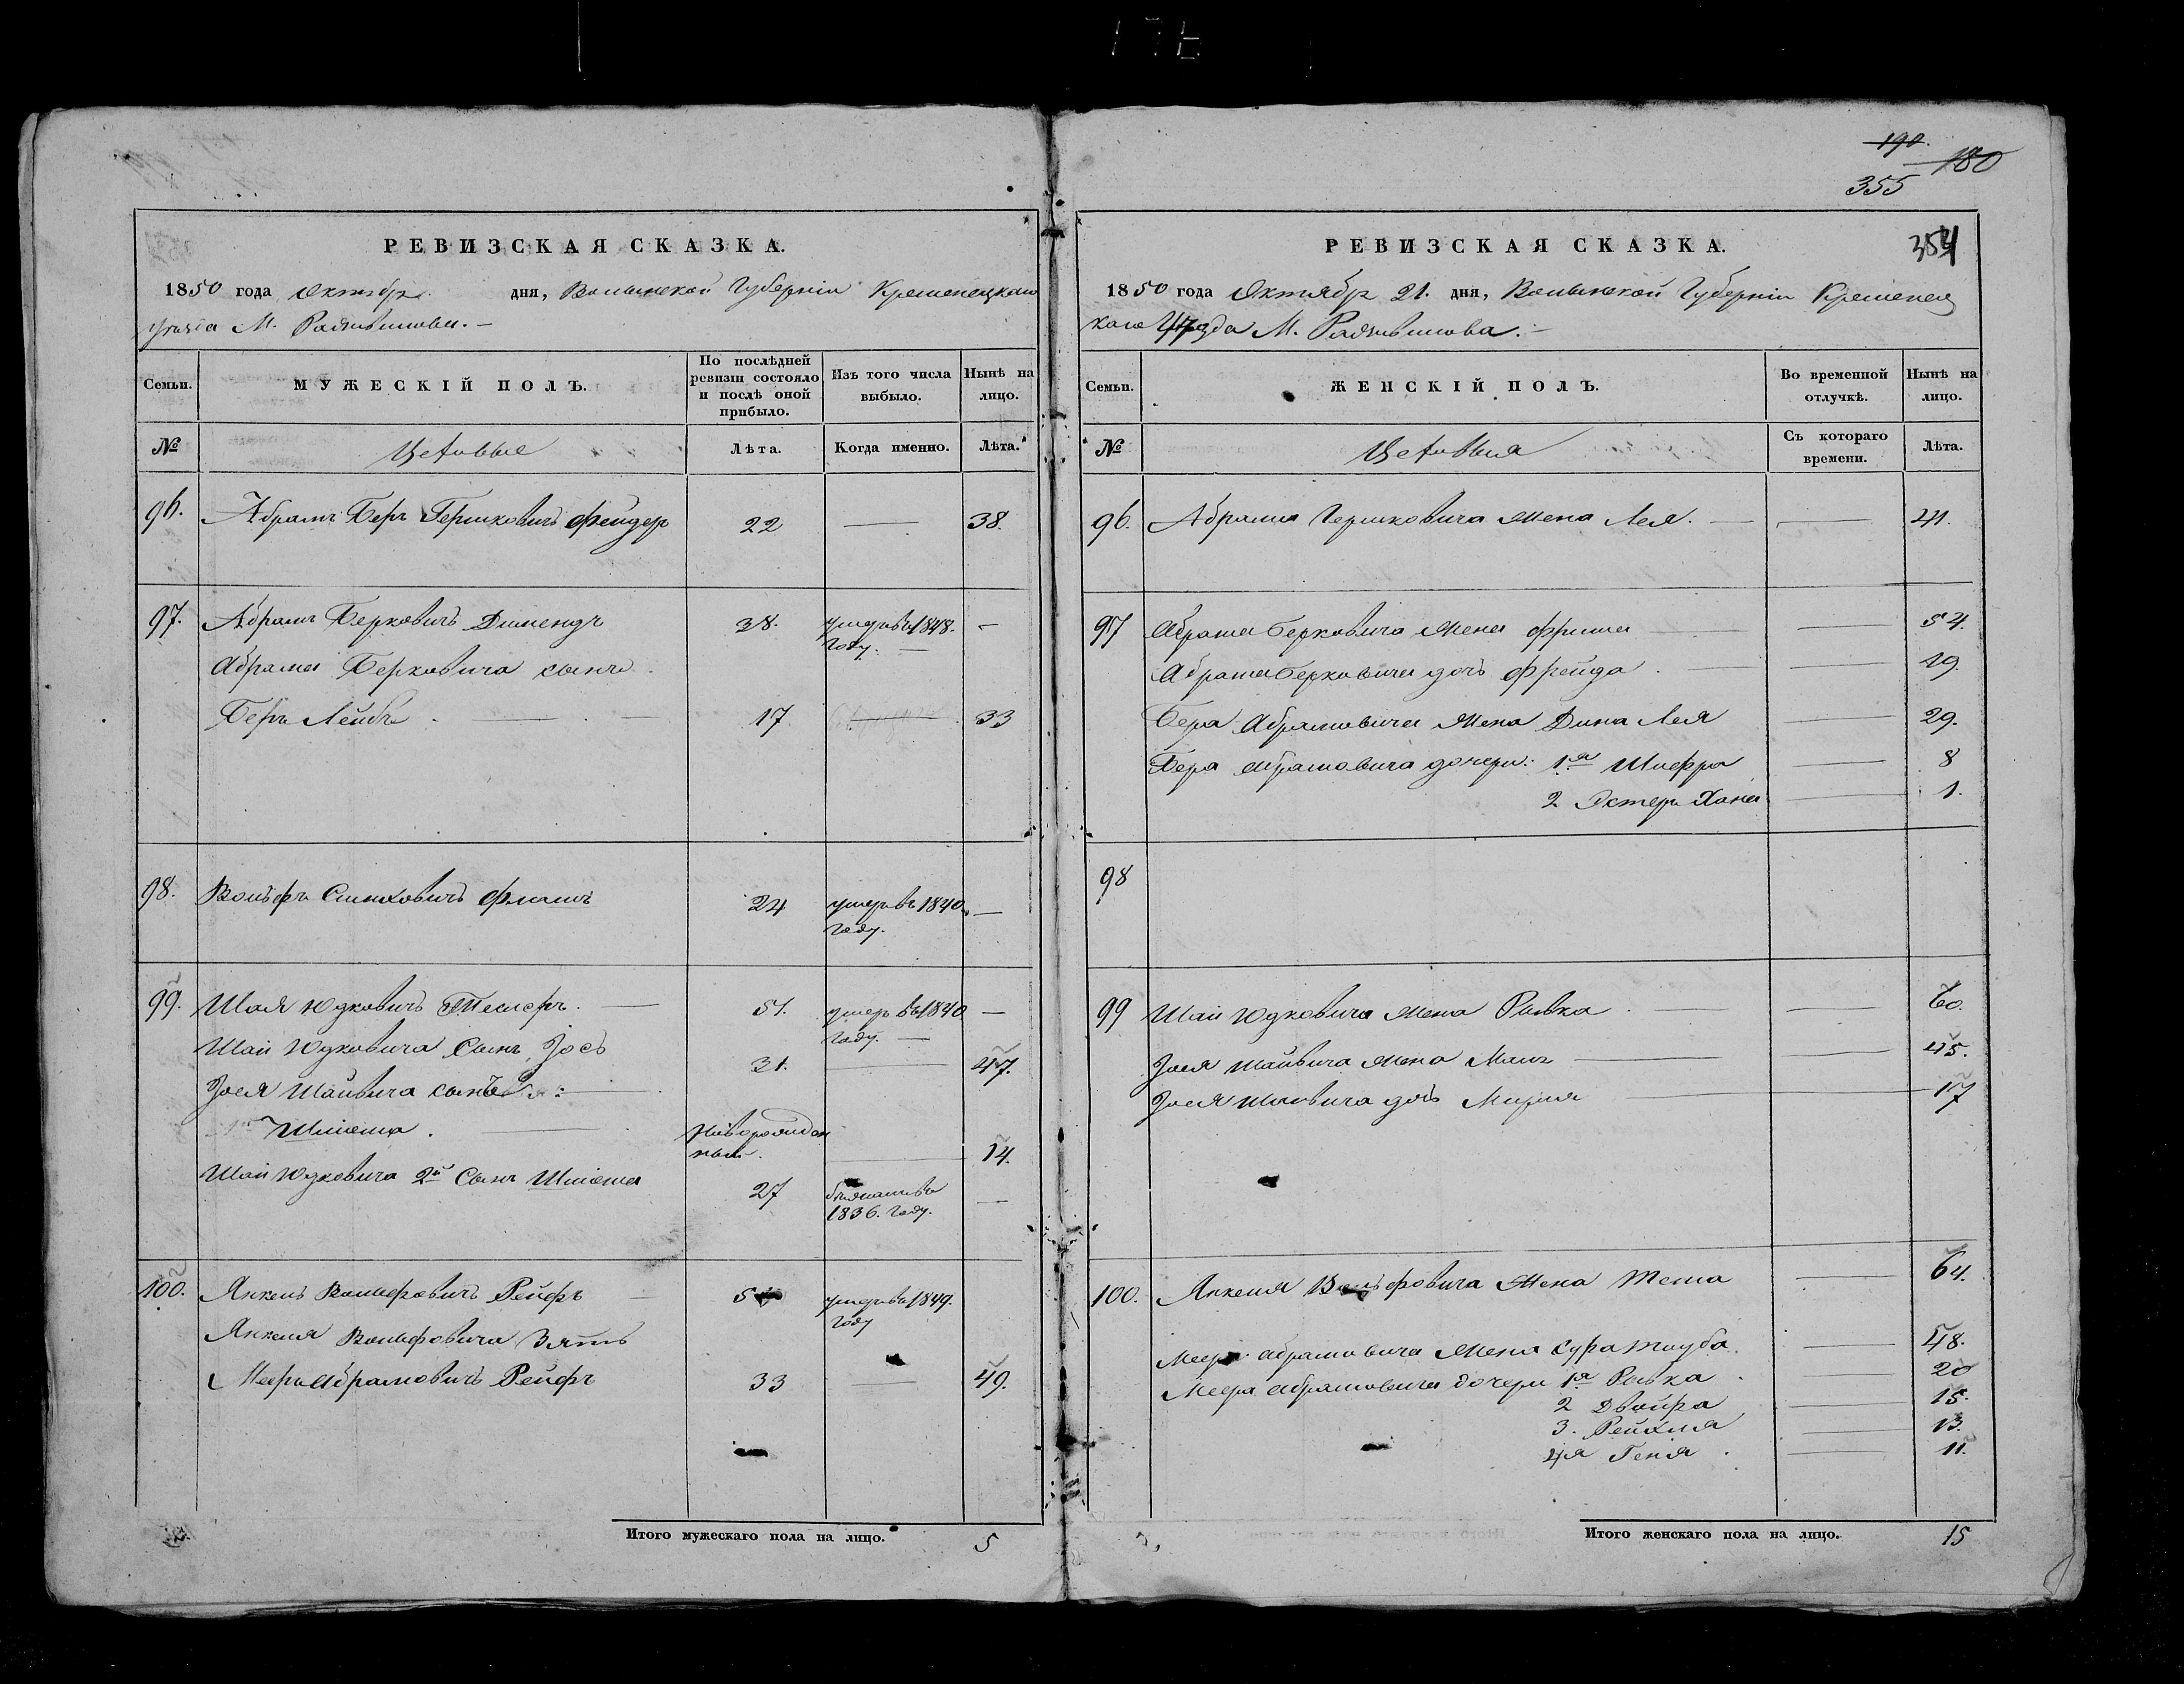 190.
180
355
РЕВИЗСКАЯ СКАЗКА.
1850 года Октября дня, Волынской Губерніи Кременецкаго
уѣзда М. Радзивилова. —
Семьи.
МУЖЕСКІЙ ПОЛЪ.
По послѣдней ревизіи состояло и послѣ оной прибыло.
Изъ того числа выбыло.
Нынѣ на лицо.
№
Лѣта.
Когда именно.
Лѣта.
96. Абрамъ Беръ Гершковичъ Фейдеръ 22 — 38.
97. Абрамъ Берковичъ 38. умеръ въ 1848. Году. — —
Абрама Берковича сынъ
Беръ Лейбъ 17 — 33
98. Вольфъ Симховичъ 24 умеръ въ 1840 Году. —
99. Шая Юдковичъ 51. умеръ въ 1840 Году. — —
Шаи Юдковича Сынъ Іось 31. — 47.
Іося Шаивича сынъ
Шліома Новорожденный. — 14.
Шаи Юдковича 2й Сынъ Шліома 27 1836. Году. —
100. Янкель Вольфовичъ Рейфъ умеръ въ 1849. Году
Янкеля Вольфовича Зять
Мееръ Абрамовичъ Рейфъ 33 — 49.
Итого мужескаго пола на лицо. 5
РЕВИЗСКАЯ СКАЗКА. 354
1850 года Октября 21. дня, Волынской Губерніи Кременец
каго уѣзда М. Радзивилова. —
Семьи.
ЖЕНСКІЙ ПОЛЪ.
Во временной отлучкѣ.
Нынѣ на лицо.
№
Съ котораго времени.
Лѣта.
96. Абрама Гершковича жена Лея. — — 41.
97 Абрама Берковича жена Фрима — — 54.
Абрама Берковича дочь Фрейда — — 19.
Бера Абрамовича жена Дина Лея — 29.
Бера Абрамовича дочери: 1я Шифра — 8
2 Эстеръ Хана — 1.
98
99 Шаи Юдковича жена Рывка — — 60.
Іося Шаивича жена — — 45.
Іося Шаивича дочь — 17
100. Янкеля Вольфовича жена — 64.
Меера Абрамовича жена Сура Тауба — 48.
Меера Абрамовича дочери 1я Рывка — 20
2 Двойра — 15.
3. Рейхля — 13.
4я Геня — 11.
Итого женскаго пола на лицо. 15